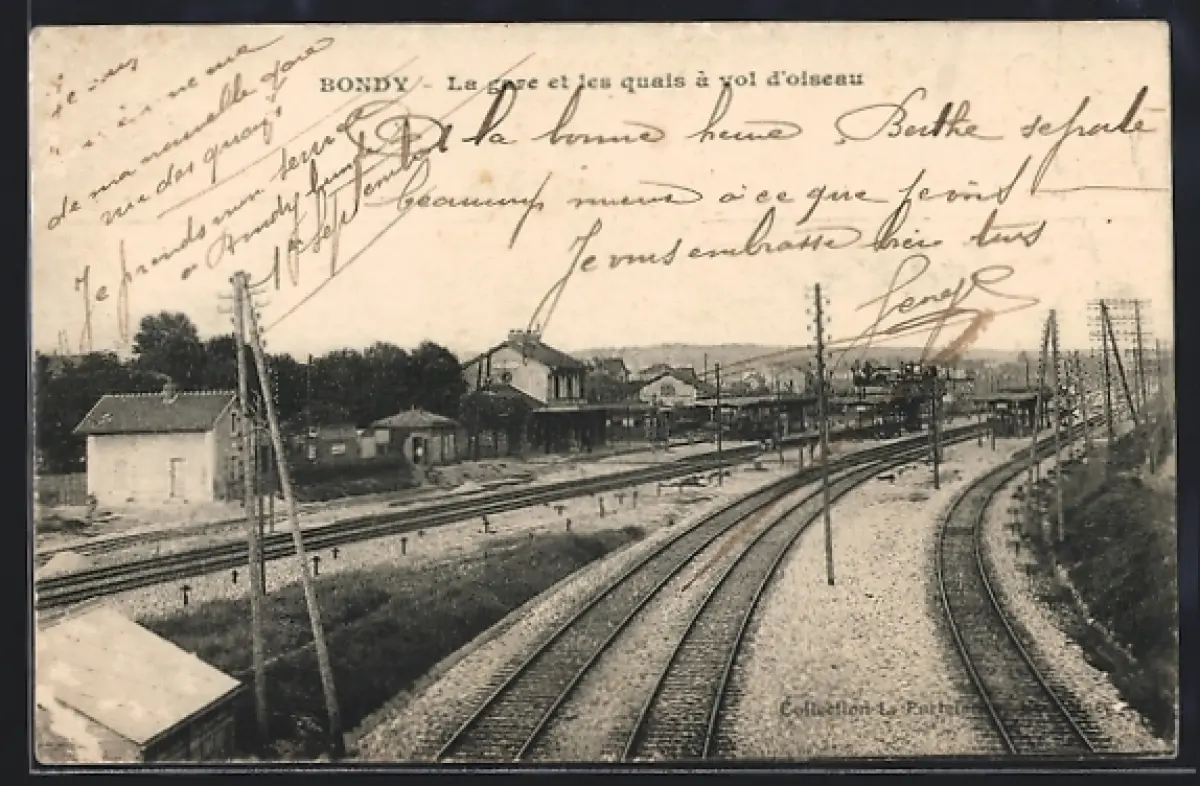 BONDY - La gare et les quais à vol d'oiseau
de ma nouvelle gare
vue des quais
Je prends mon service
à Bondy lundi
1er Septembre
A la bonne heure Berthe se porte
beaucoup mieux à ce que je vois
Je vous embrasse bien tous
Collection